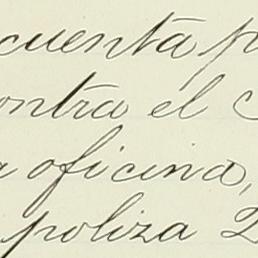 cuenta p
ontra el
a oficina,
poliza